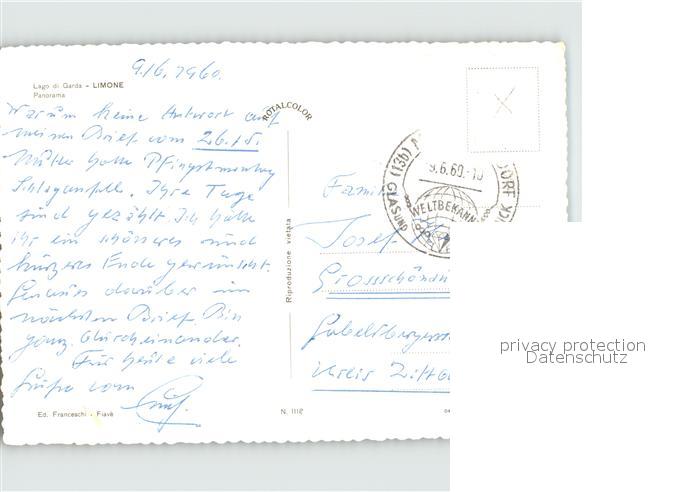 9./6. 1960.
Lago di Garda - LIMONE
Panorama
Warum keine Antwort auf
meinen Brief vom 26./5.
Mutter hatte Pfingstmontag
Schlaganfall. Ihre Tage
sind gezählt. Ich hätte
ihr ein schöneres und
kürzeres Ende gewünscht.
Genaues darüber im
nächsten Brief. Bin
ganz durcheinander.
Für heute viele
Grüße vom
Ed. Franceschi - Fiavè
N. 1118
ROTALCOLOR
Riproduzione vietata
(13b)
DORF
GLASUNG
-9.6.60.-10
WELTBEKANN
Famil
Josef
Grossschönau
Gabelsbergerst
Kreis Zitt
privacy protection
Datenschutz